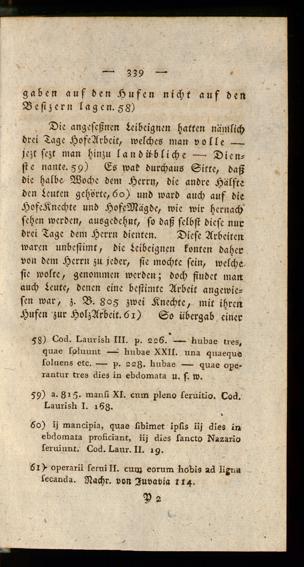 — 339 —
gaben auf den Hufen nicht auf den
Besizern lagen. 58)
Die angeseßnen Leibeignen hatten nämlich
drei Tage HofeArbeit, welches man volle —
jezt sezt man hinzu landübliche — Dien-
ste nante. 59) Es war durchaus Sitte, daß
die halbe Woche dem Herrn, die andre Hälfte
den Leuten gehörte, 60) und ward auch auf die
HofeKnechte und HofeMägde, wie wir hernach
sehen werden, ausgedehnt, so daß selbst diese nur
drei Tage dem Herrn dienten. Diese Arbeiten
waren unbestimt, die Leibeignen konten daher
von dem Herrn zu jeder, sie mochte sein, welche
sie wolte, genommen werden; doch findet man
auch Leute, denen eine bestimte Arbeit angewie-
sen war, z. B. 805 zwei Knechte, mit ihren
Hufen zur HolzArbeit. 61) So übergab einer
58) Cod. Laurish III. p. 226. — hubae tres,
quae soluunt — hubae XXII. una quaeque
soluens etc. — p. 228. hubae — quae ope-
rantur tres dies in ebdomata u. s. w.
59) a. 815. mansi XI. cum pleno seruitio. Cod.
Laurish I. 168.
60) ij mancipia, quae sibimet ipsis iij dies in
ebdomata proficiant, iij dies sancto Nazario
seruiunt. Cod. Laur. II. 19.
61) operarii serui II. cum eorum hobis ad ligna
secanda. Nachr. von Juvavia 114.
Y 2